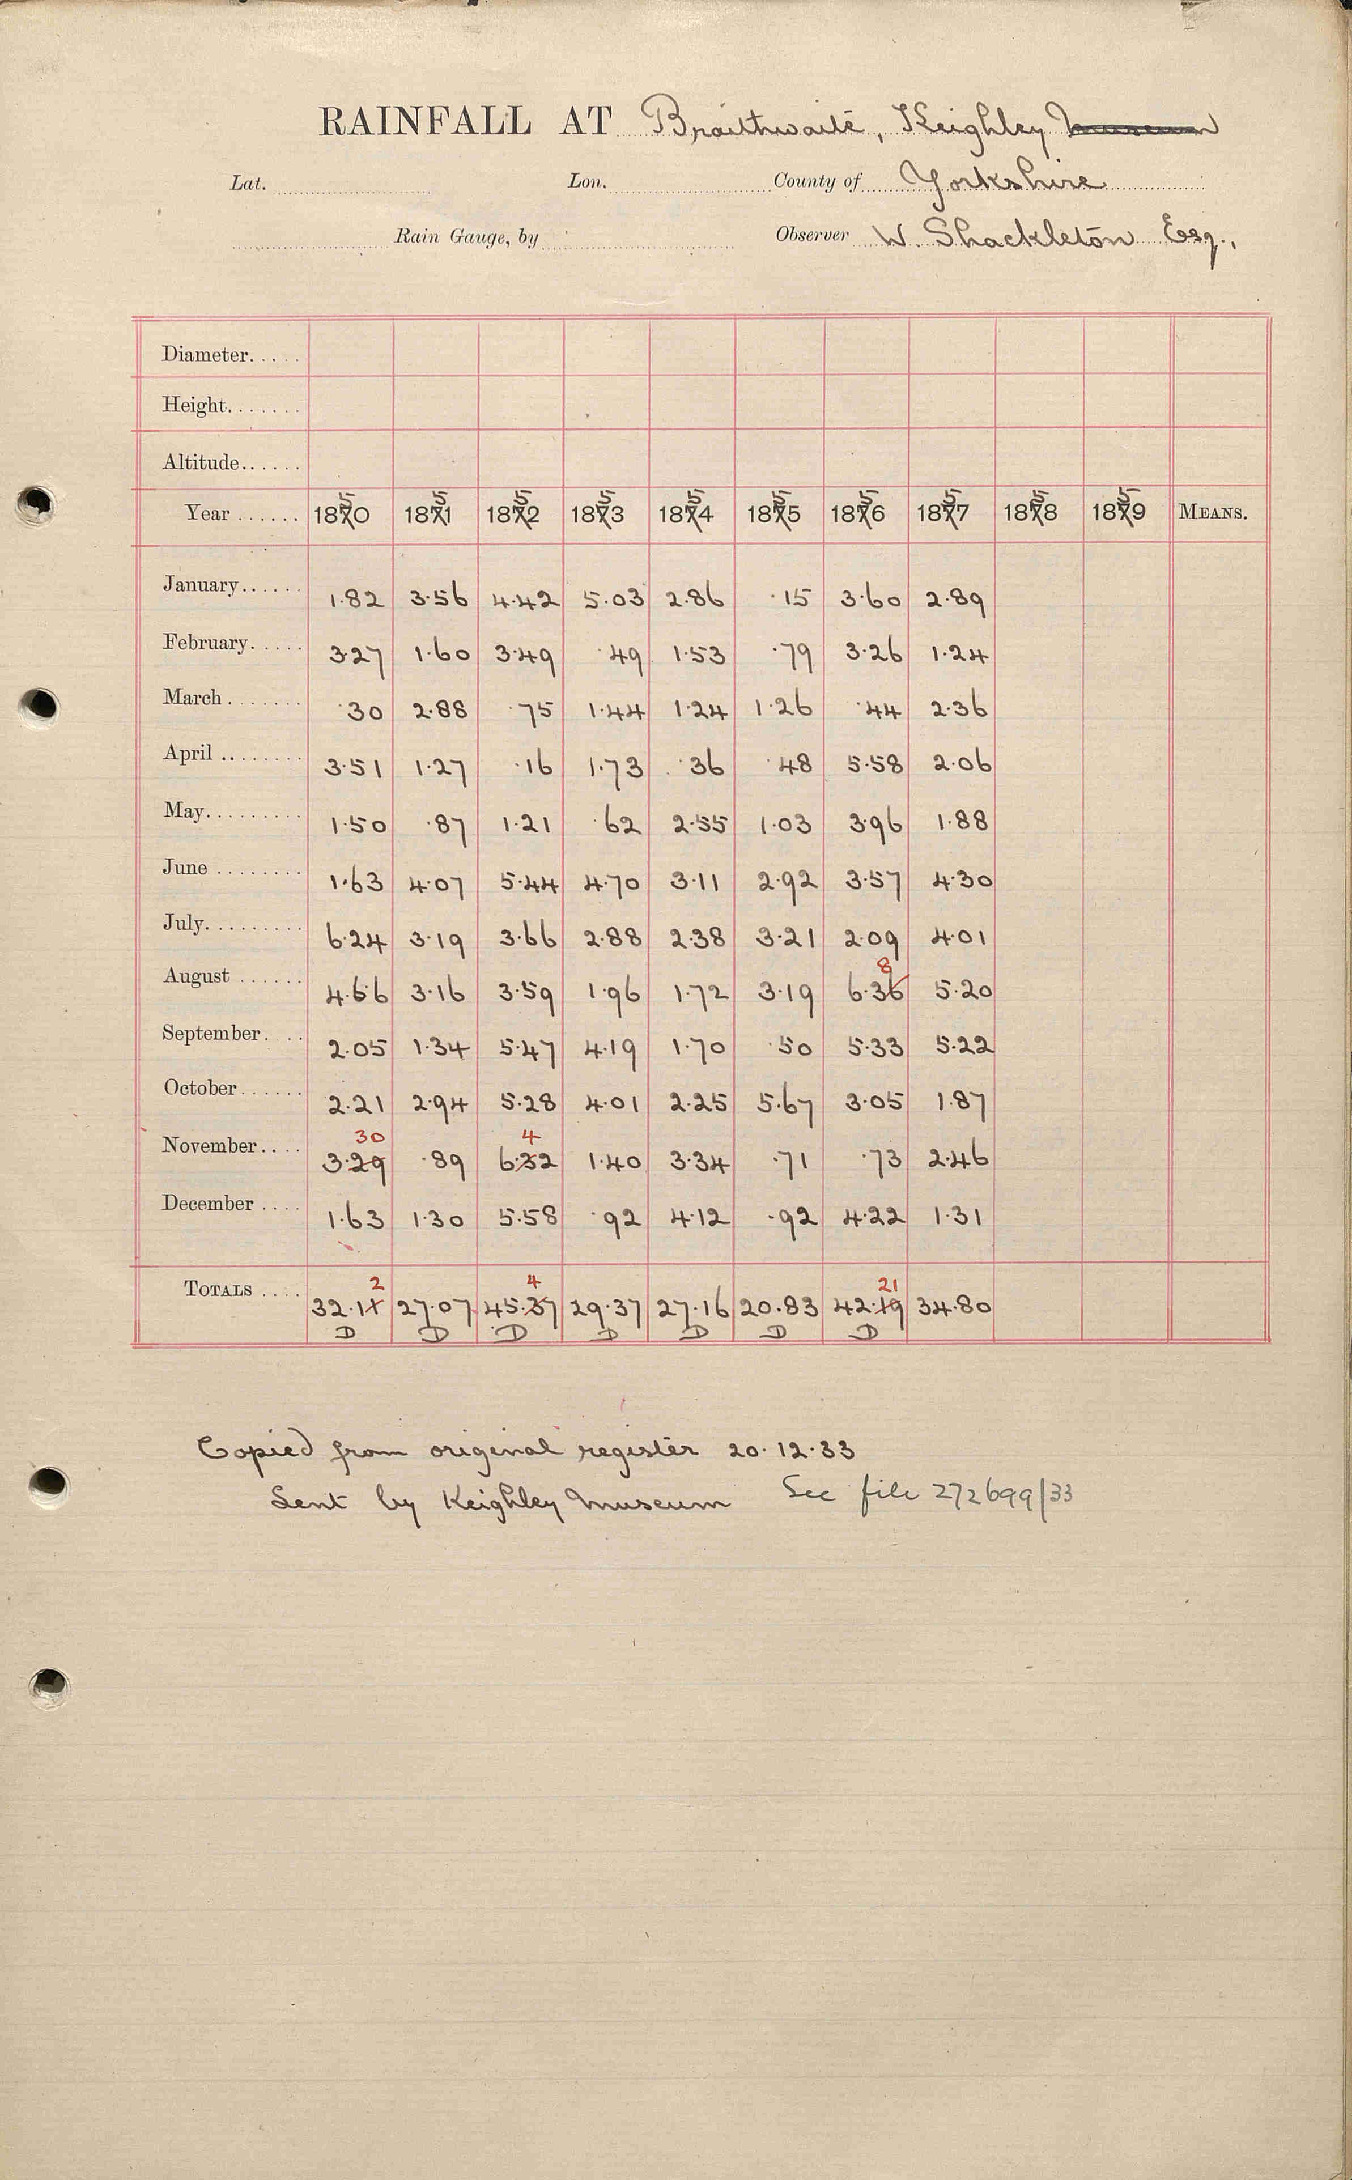 RAINFALL AT Braithwaite, Keighley Museum
Lat. Lon. County of Yorkshire
Rain Gauge, by Observer W. Shackleton Esq.,
Diameter.....
Height.......
Altitude......
Year ...... 1850 1851 1852 1853 1854 1855 1856 1857 1858 1859 MEANS.
January...... 1.82 3.56 4.42 5.03 2.86 .15 3.60 2.89
February..... 3.27 1.60 3.49 .49 1.53 .79 3.26 1.24
March....... .30 2.88 .75 1.44 1.24 1.26 .44 2.36
April ........ 3.51 1.27 .16 1.73 .36 .48 5.58 2.06
May......... 1.50 .87 1.21 .62 2.55 1.03 3.96 1.88
June ........ 1.63 4.07 5.44 4.70 3.11 2.92 3.57 4.30
July......... 6.24 3.19 3.66 2.88 2.38 3.21 2.09 4.01
8
August ...... 4.66 3.16 3.59 1.96 1.72 3.19 6.36 5.20
September... 2.05 1.34 5.47 4.19 1.70 .50 5.33 5.22
October...... 2.21 2.94 5.28 4.01 2.25 5.67 3.05 1.87
30 4
November.... 3.29 .89 6.32 1.40 3.34 .71 .73 2.46
December .... 1.63 1.30 5.58 .92 4.12 .92 4.22 1.31
2 4 21
TOTALS .... 32.11 27.07 45.37 29.37 27.16 20.83 42.19 34.80
D D D D D D D
Copied from original register 20.12.33
Sent by Keighley Museum See file 272699/33